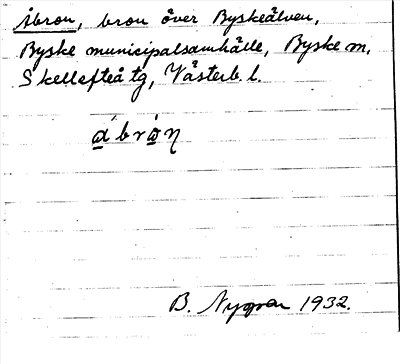 Åbron, bron över Byskeälven,
Byske municipalsamhälle, Byske sn,
Skellefteå tg, Västerb. l.
å´brò̱ɳ
B. Nygren 1932.